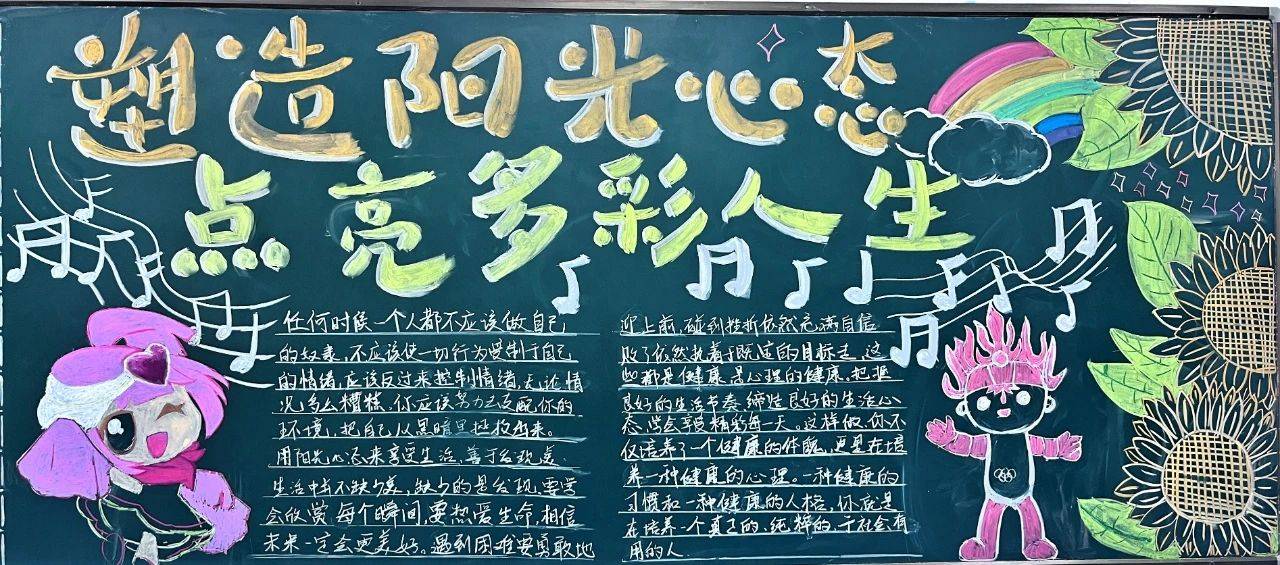 塑造阳光心态
点亮多彩人生
任何时候一个人都不应该做自己
的奴隶,不应该使一切行为受制于自己
的情绪,应该反过来控制情绪,无论情
况多么糟糕,你应该努力去支配你的
环境,把自己从黑暗里拯救出来。
用阳光心态来享受生活,善于欣赏
生活中不缺少美,缺少的是发现,要学
会欣赏每个瞬间,要热爱生命,相信
未来一定会更美好。遇到困难要勇敢地
迎上前,碰到挫折依然充满自信
败了依然执着于既定的目标走,这
些都是健康是心理的健康,把握
良好的生活节奏,缔造良好的生活心
态,你会享受精彩每一天。这样做,你不
仅培养了一个健康的体魄,更是在培
养一种健康的心理。一种健康的
习惯和一种健康的人格,你就是
在培养一个真正的,纯粹的,于社会有
用的人